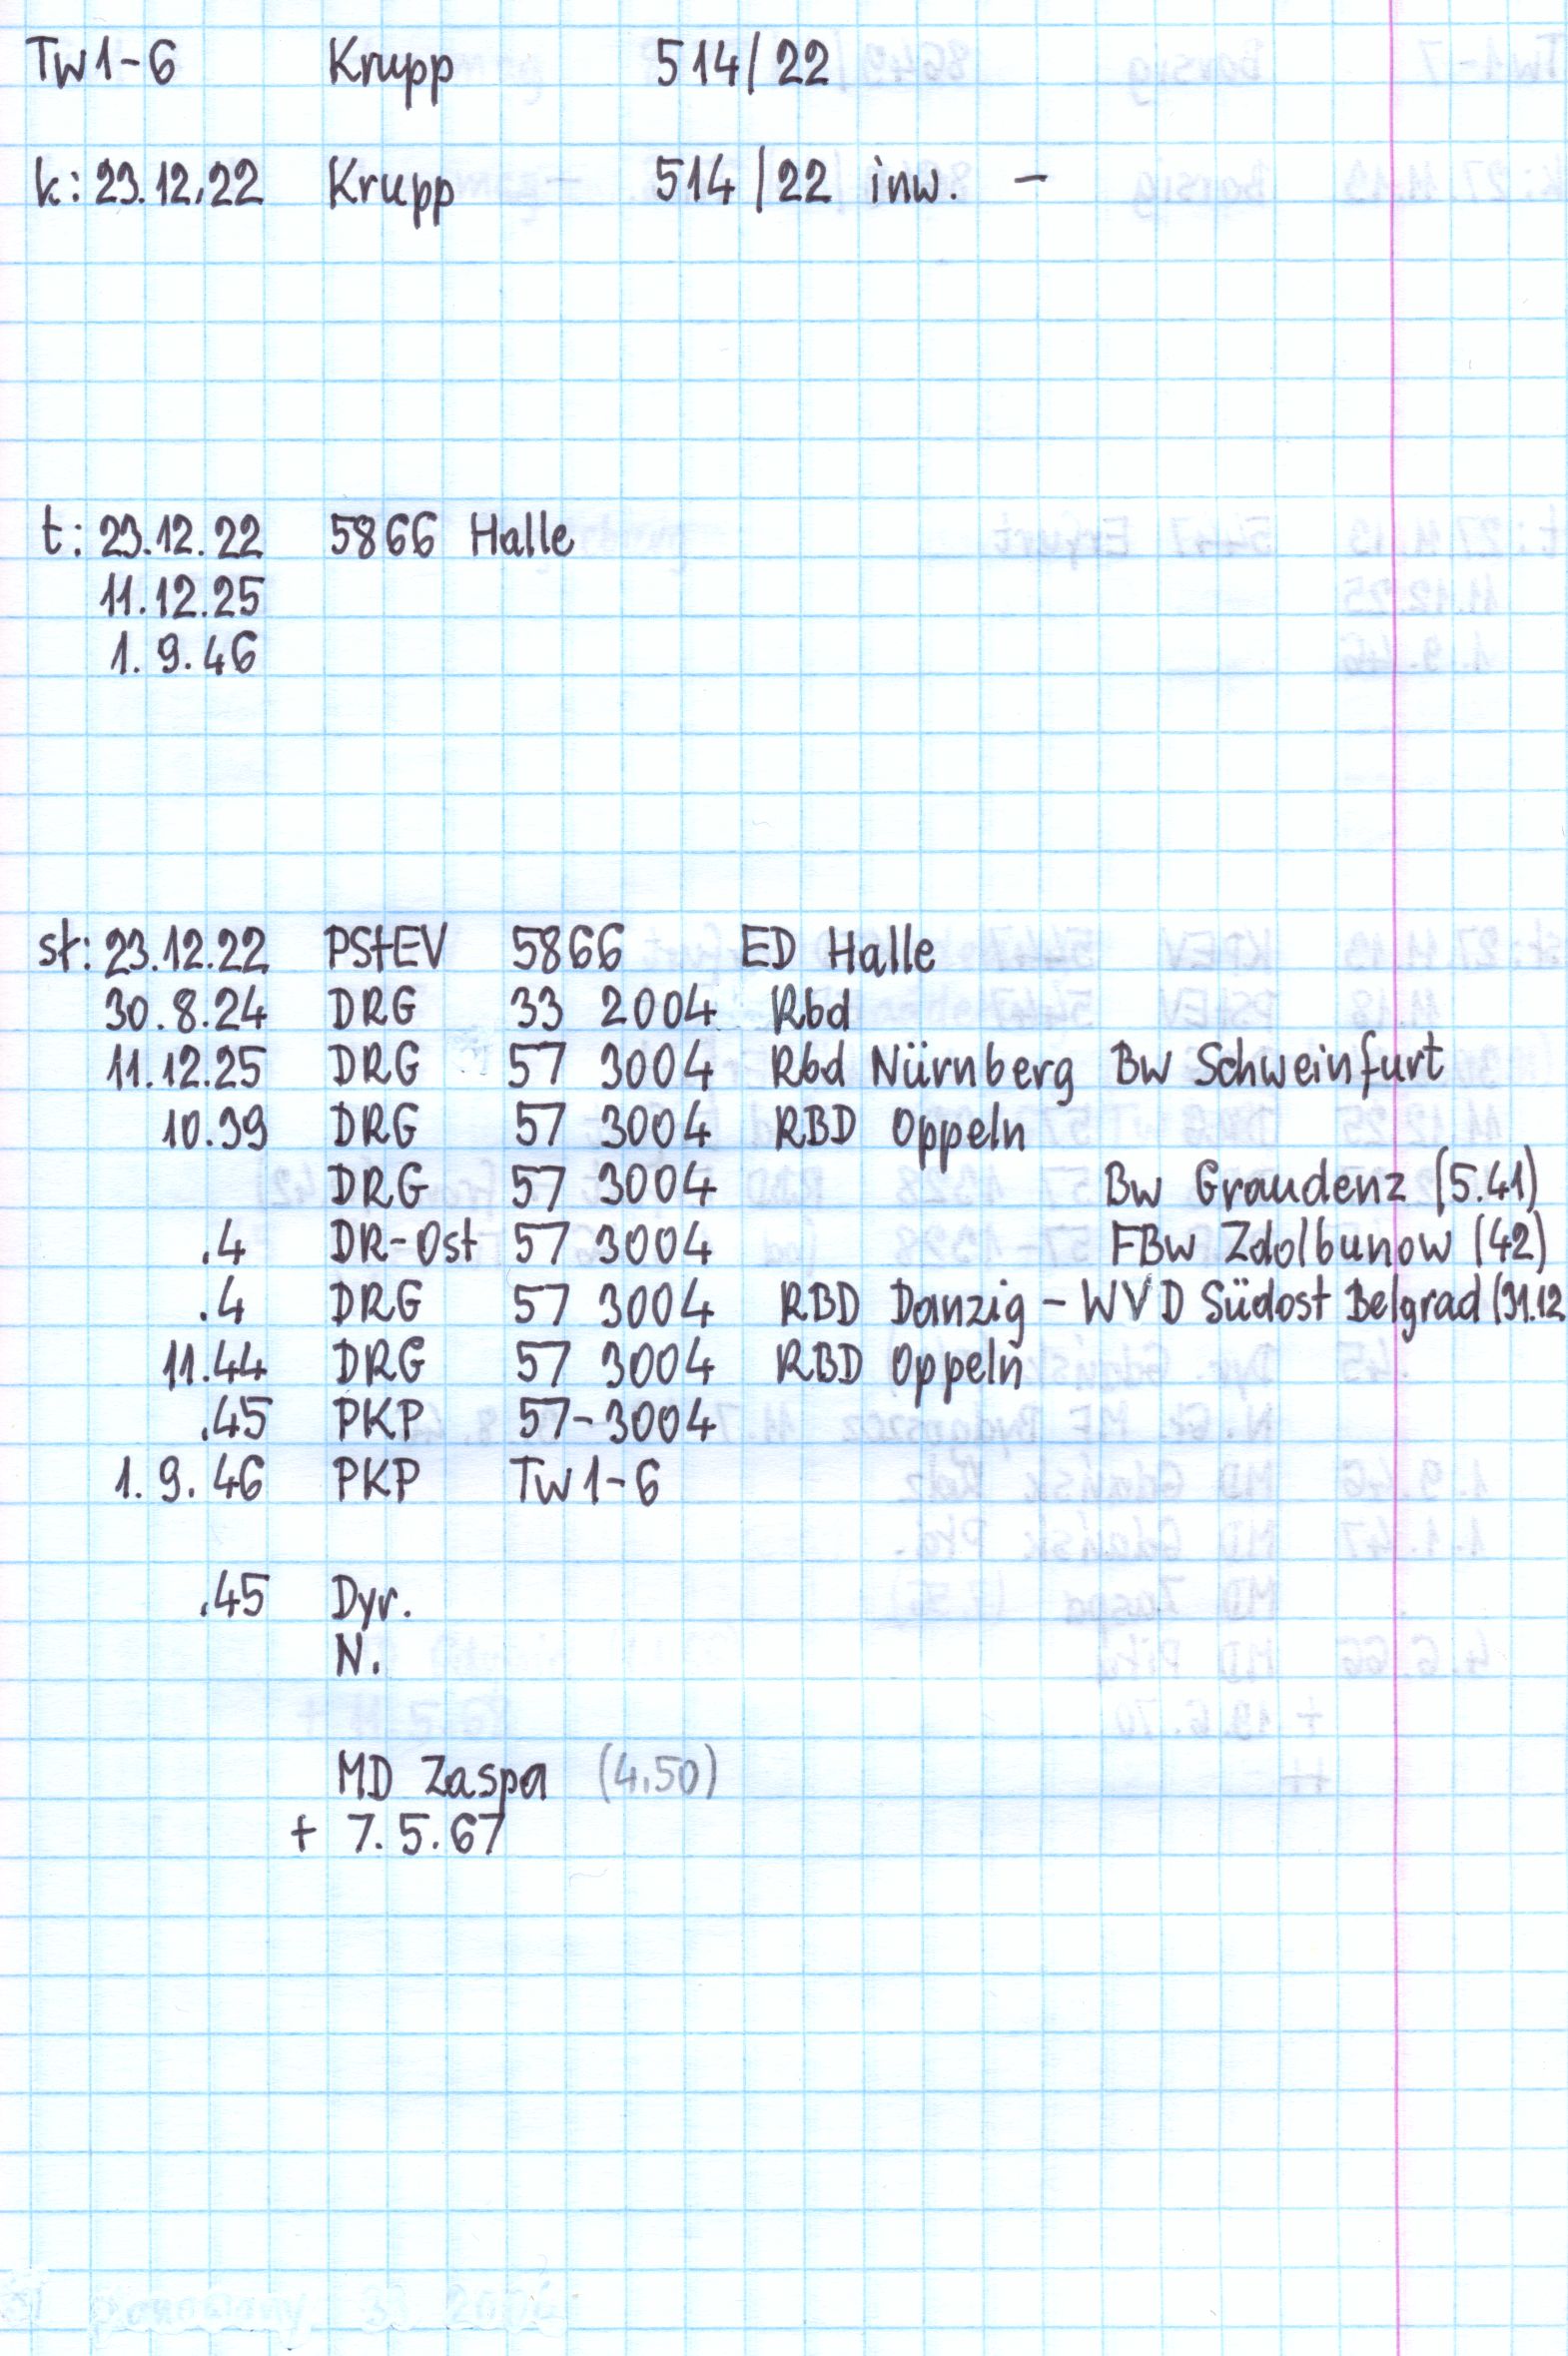 Tw1-6 Krupp 514/22
k: 23.12.22 Krupp 514/22 inw. -
t: 23.12.22 5866 Halle
11.12.25
1.9.46
st: 23.12.22 PStEV 5866 ED Halle
30.8.24 DRG 33 2004 Rbd
11.12.25 DRG 57 3004 Rbd Nürnberg Bw Schweinfurt
10.39 DRG 57 3004 RBD Oppeln
DRG 57 3004 Bw Graudenz (5.41)
.4 DR-Ost 57 3004 FBw Zdolbunow (42)
.4 DRG 57 3004 RBD Danzig - WVD Südost Belgrad (31.12
11.44 DRG 57 3004 RBD Oppeln
.45 PKP 57-3004
1.9.46 PKP Tw1-6
.45 Dyr.
N.
MD Zaspa (4.50)
+ 7.5.67